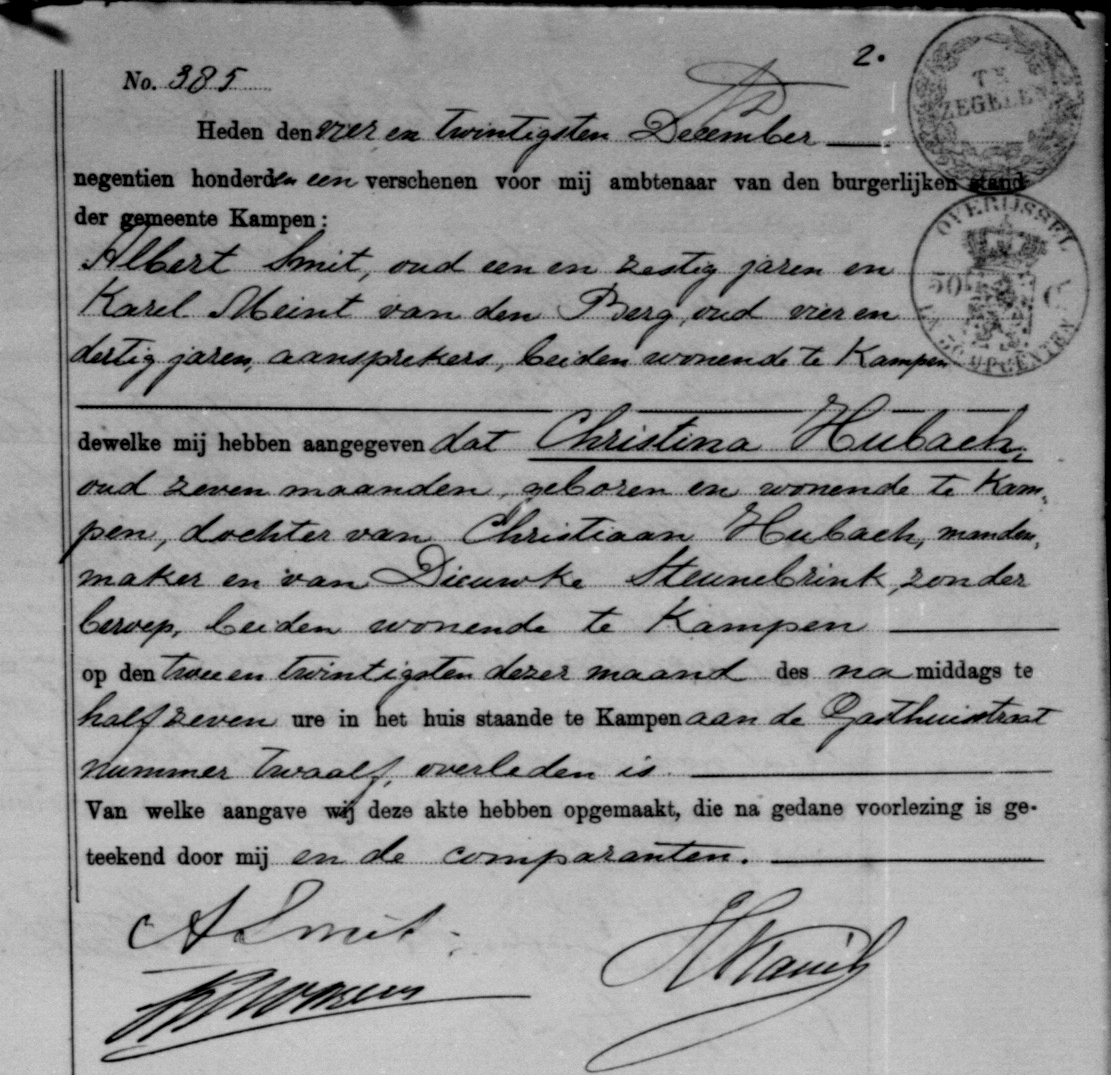 2.
No. 385
TE ZEGELEN
Heden den vier en twintigsten December
negentien honderd en een verschenen voor mij ambtenaar van den burgerlijken stand
der gemeente Kampen:
OVERIJSSEL
50 C
Albert Smit, oud een en zestig jaren en
Karel Meint van den Berg, oud vier en
dertig jaren, aansprekers, beiden wonende te Kampen
dewelke mij hebben aangegeven dat Christina Hubach,
oud zeven maanden, geboren en wonende te Kam-
pen, dochter van Christiaan Hubach, manden-
maker en van Dieuwke Steunebrink, zonder
beroep, beiden wonende te Kampen
op den twee en twintigsten dezer maand des na middags te
half zeven ure in het huis staande te Kampen aan de Gasthuisstraat
nummer twaalf, overleden is.
Van welke aangave wij deze akte hebben opgemaakt, die na gedane voorlezing is ge-
teekend door mij en de comparanten.
A Smit.